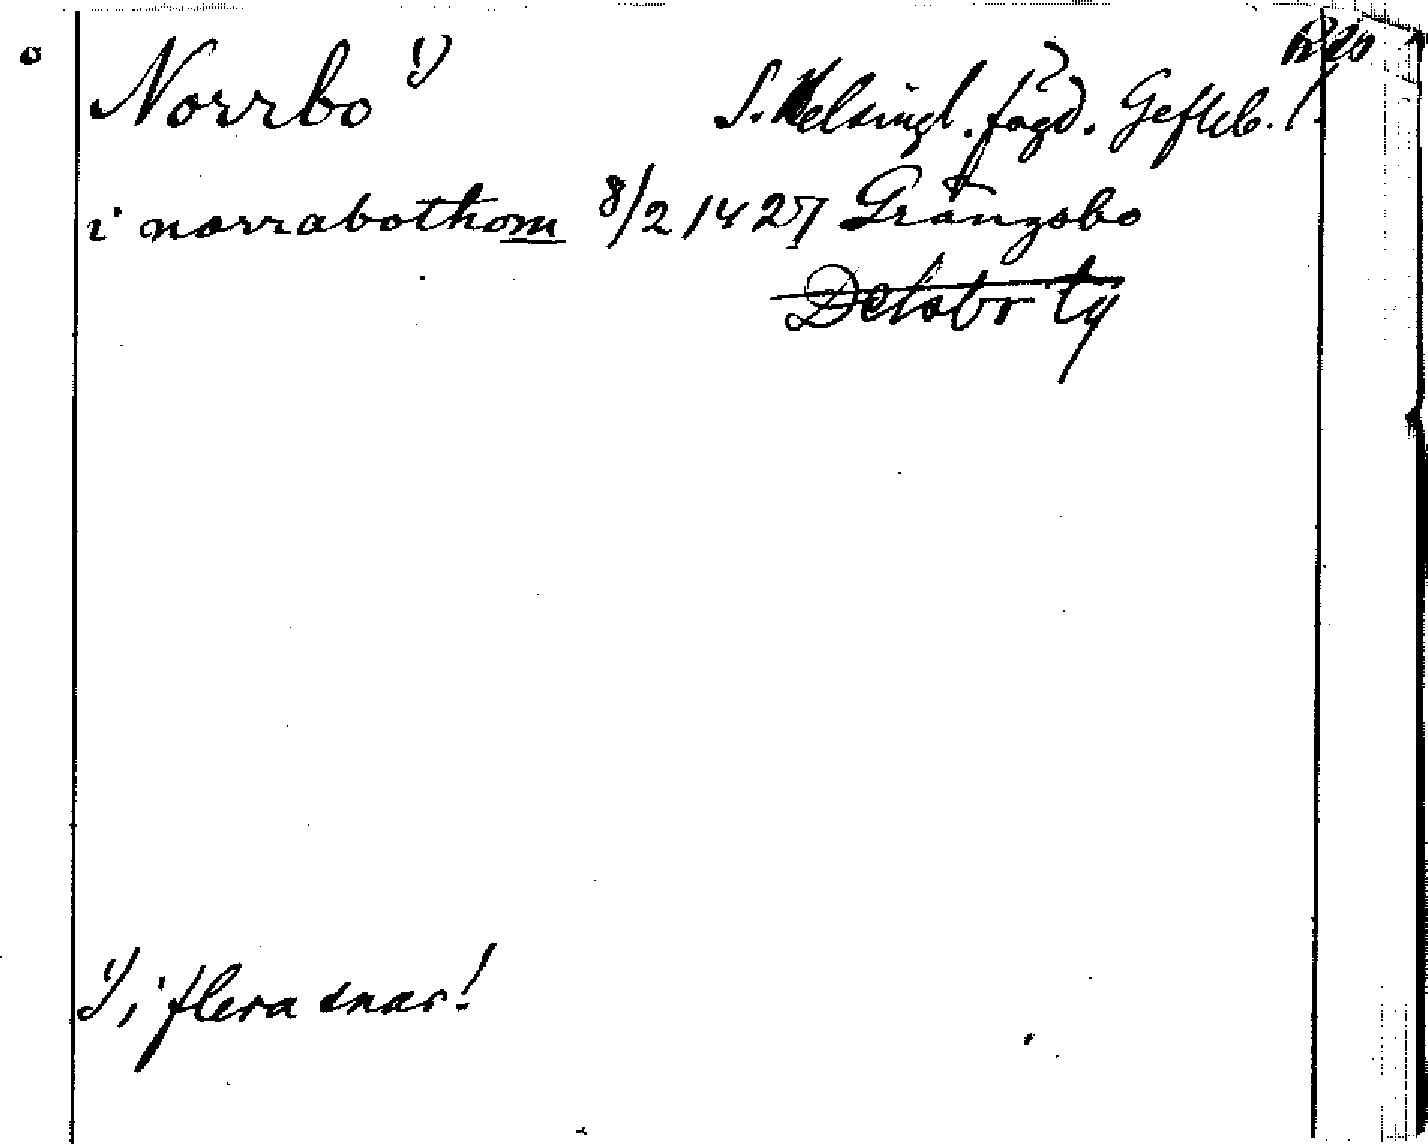 Norrbo 1)
S. Helsingl. fögd. Gefleb. l.
i norrabothom 8/2 1427 Grängsbo
Delsbo tg
1) i flera snar!